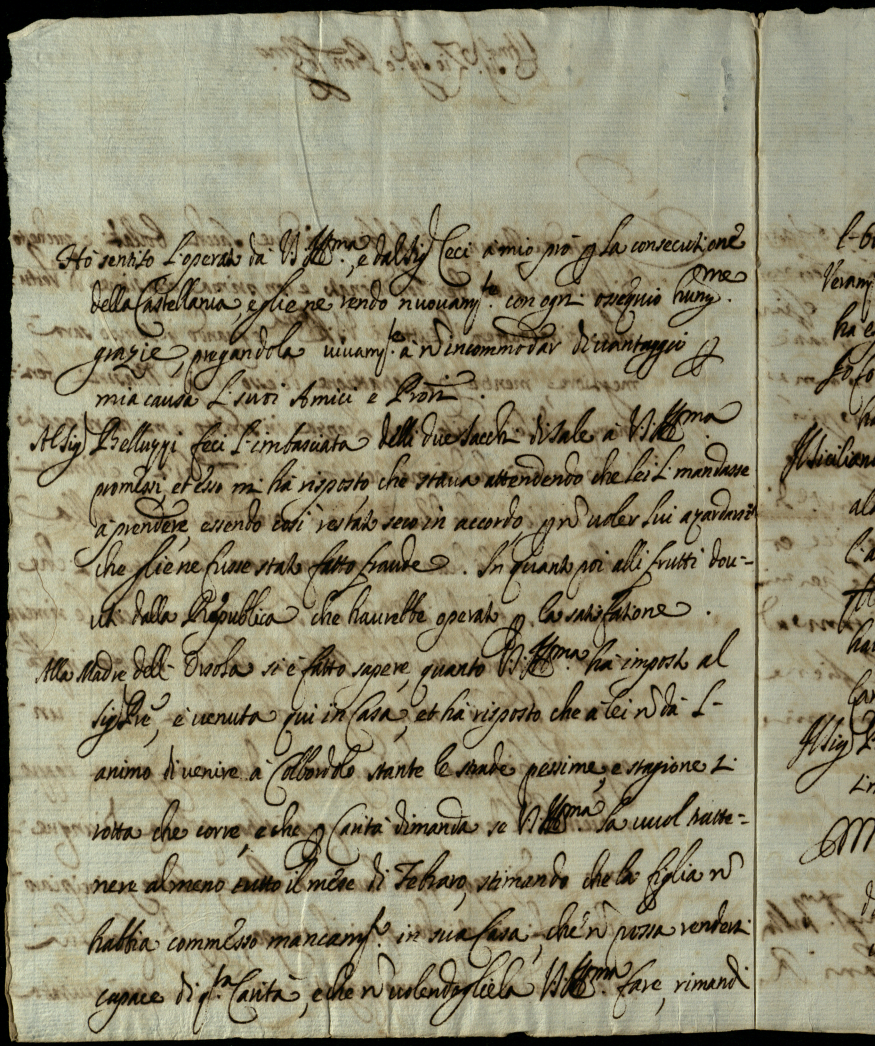 Hò sentito l'operato da V.S. Ill.ma, e dal Sig.r Ceci à mio prò p la consecutione
della Castellania e gliene rendo nuovam.te con ogni ossequio hum.me
grazie, pregandola vivam.te à nõ incommodar d'avantaggio p
mia causa li suoi Amici e Pron̄i.
Al Sig.r Belluzzi feci l'imbasciata delli due sacchi di sale à V.S. Ill.ma
promessi, et esso mi hà risposto, che stava attendendo che lei li mandasse
à prendere, essendo così restato seco in accordo p nõ voler lui azardarsi
che gliene fusse stato fatto fraude. In quanto poi alli frutti dou=
uti dalla Republica che haurebbe operato p la satisfatione.
Alla Madre dell' Orsola si è fatto sapere, quanto V.S. Ill.ma hà imposto al
Sig.r Prē, è venuta qui in Casa, et hà risposto che à lei nõ dà l'
animo di venire à Colbordolo stante le strade pessime, e stagione sì
rotta che corre, e che p Carità dimanda se V.S. Ill.ma la vuol tratte=
nere almeno tutto il mese di Febraro, stimando che la figlia nõ
habbia commesso mancam.to in sua Casa, che nõ possa rendersi
capace di q.sta Carità, e che nõ volendogliela V.S. Ill.ma fare, rimandi
l'
Veram.
hà e
Il Siciliano
al
Il Sig.r